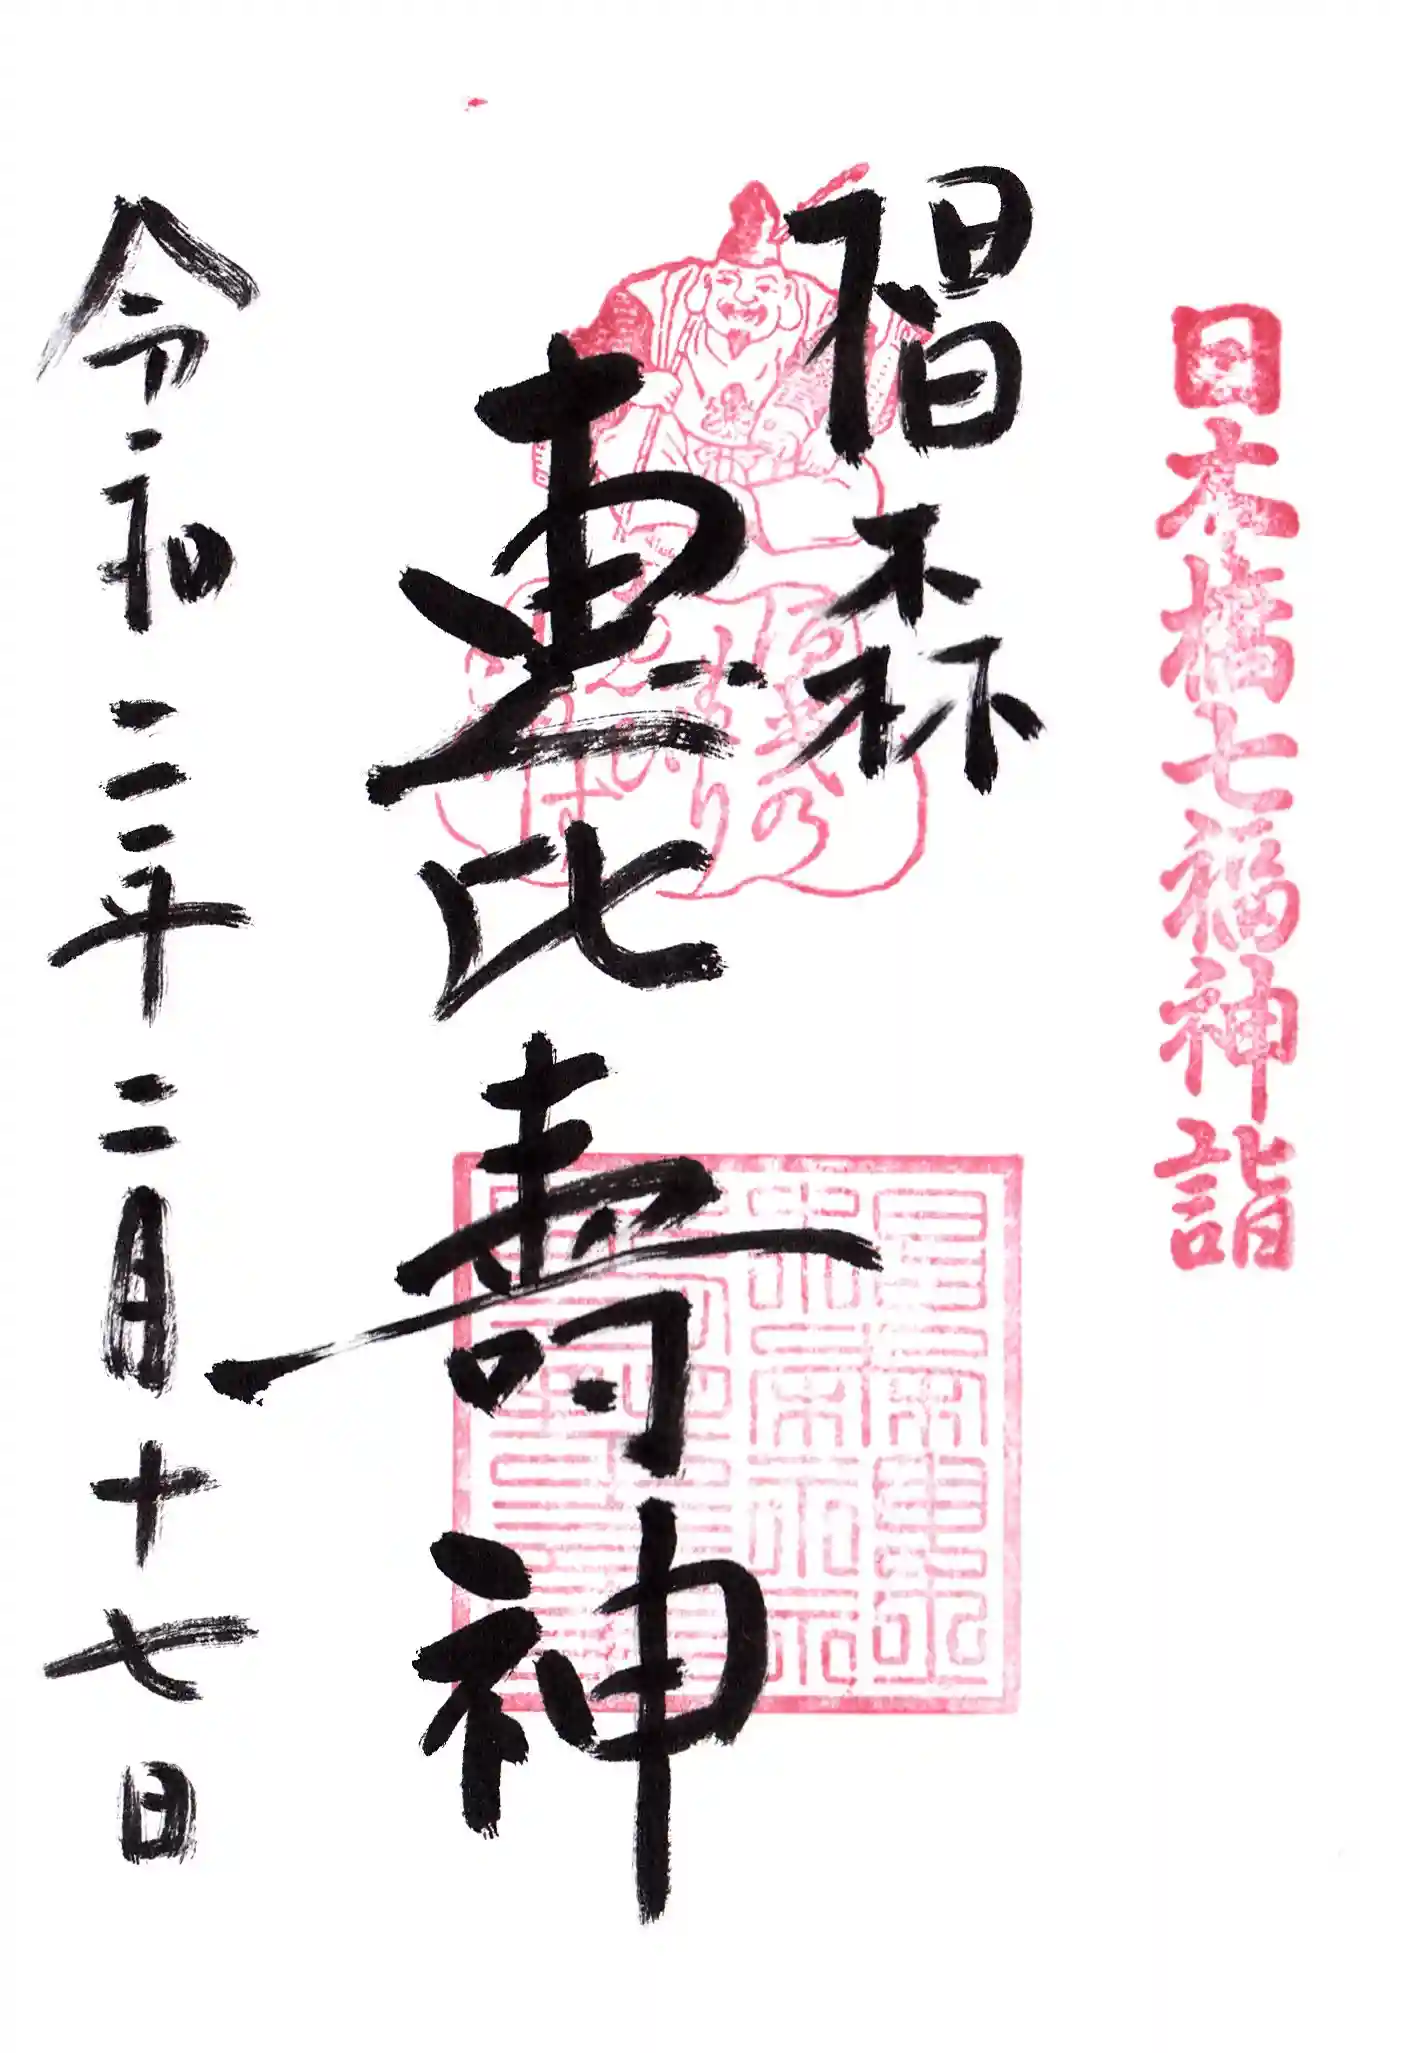 日本橋七福神詣
椙森
恵比壽神
令和二年二月十七日